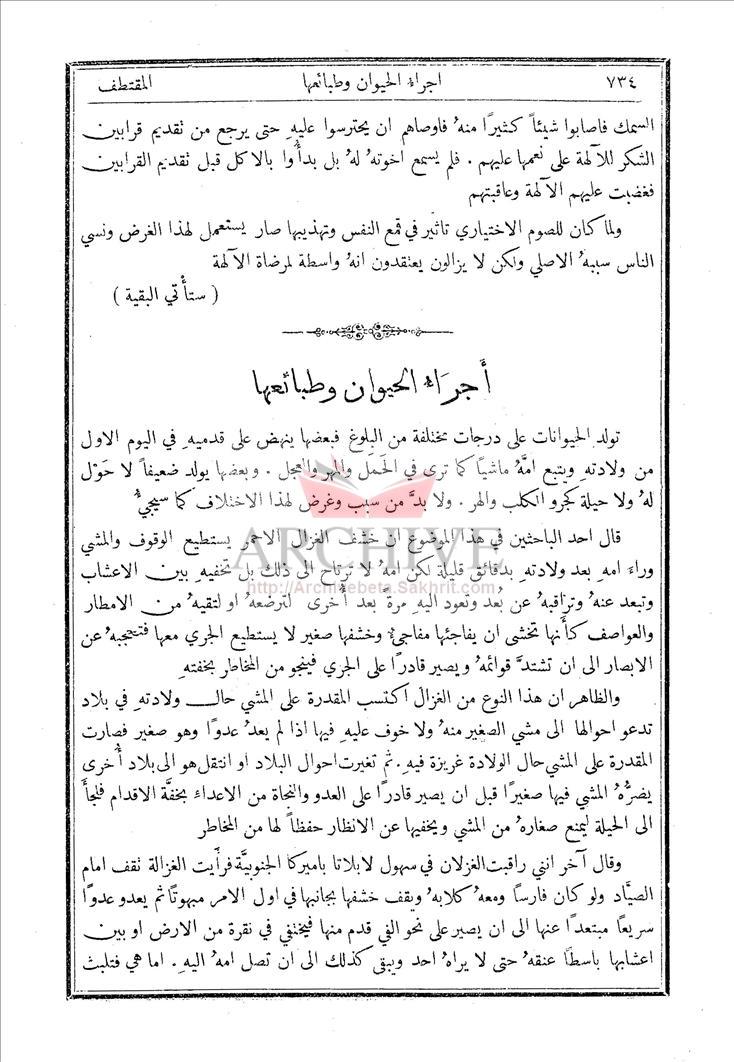 ٧٣٤ اجراء الحيوان وطبائعها المقتطف
السمك فاصابوا شيئاً كثيرًا منهُ فاوصاهم ان يحترسوا عليهِ حتى يرجع من تقديم قرابين
الشكر للآلهة على نعمها عليهم . فلم يسمع اخوتهُ لهُ بل بدأوا بالاكل قبل تقديم القرابين
فغضبت عليهم الآلهة وعاقبتهم
ولما كان للصوم الاختياري تاثير في قمع النفس وتهذيبها صار يستعمل لهذا الغرض ونسي
الناس سببهُ الاصلي ولكن لا يزالون يعتقدون انهُ واسطة لمرضاة الآلهة
( ستأتي البقية )
أجرَاء الحيوان وطبائعها
تولد الحيوانات على درجات مختلفة من البلوغ فبعضها ينهض على قدميهِ في اليوم الاول
من ولادتهِ ويتبع امَّهُ ماشياً كما ترى في الحَمَل والمهر والعجل . وبعضها يولد ضعيفاً لا حَوْل
لهُ ولا حيلة كجرو الكلب والهر . ولا بدَّ من سبب وغرض لهذا الاختلاف كما سيجيُّ
قال احد الباحثين في هذا الموضوع ان خشف الغزال الاحمر يستطيع الوقوف والمشي
وراء امهِ بعد ولادتهِ بدقائق قليلة لكن امهُ لا ترتاح الى ذلك بل تخفيهِ بين الاعشاب
وتبعد عنهُ وتراقبهُ عن بُعد وتعود اليهِ مرةً بعد أُخرى لترضعهُ او لتقيهُ من الامطار
والعواصف كأَنها تخشى ان يفاجئها مفاجئٌ وخشفها صغير لا يستطيع الجري معها فتحجبهُ عن
الابصار الى ان تشتدَّ قوائمهُ ويصير قادرًا على الجري فينجو من المخاطر بخفتهِ
والظاهر ان هذا النوع من الغزال اكتسب المقدرة على المشي حال ولادتهِ في بلاد
تدعو احوالها الى مشي الصغير منهُ ولا خوف عليهِ فيها اذا لم يعدُ عدوًا وهو صغير فصارت
المقدرة على المشي حال الولادة غريزة فيهِ . ثم تغيرت احوال البلاد او انتقل هو الى بلاد أُخرى
يضرُّهُ المشي فيها صغيرًا قبل ان يصير قادرًا على العدو والنجاة من الاعداء بخفَّة الاقدام فلجأَ
الى الحيلة ليمنع صغارهُ من المشي ويخفيها عن الانظار حفظاً لها من المخاطر
وقال آخر انني راقبت الغزلان في سهول لابلاتا باميركا الجنوبيَّة فرأيت الغزالة نقف امام
الصيَّاد ولو كان فارسًا ومعهُ كلابهُ ويقف خشفها بجانبها في اول الامر مبهوتًا ثم يعدو عدوًا
سريعًا مبتعدًا عنها الى ان يصير على نحو الفي قدم منها فيختفي في نقرة من الارض او بين
اعشابها باسطًا عنقهُ حتى لا يراهُ احد ويبقى كذلك الى ان تصل امهُ اليهِ . اما هي فتلبث
ARCHIVE
http://Archivebeta.Sakhrit.com